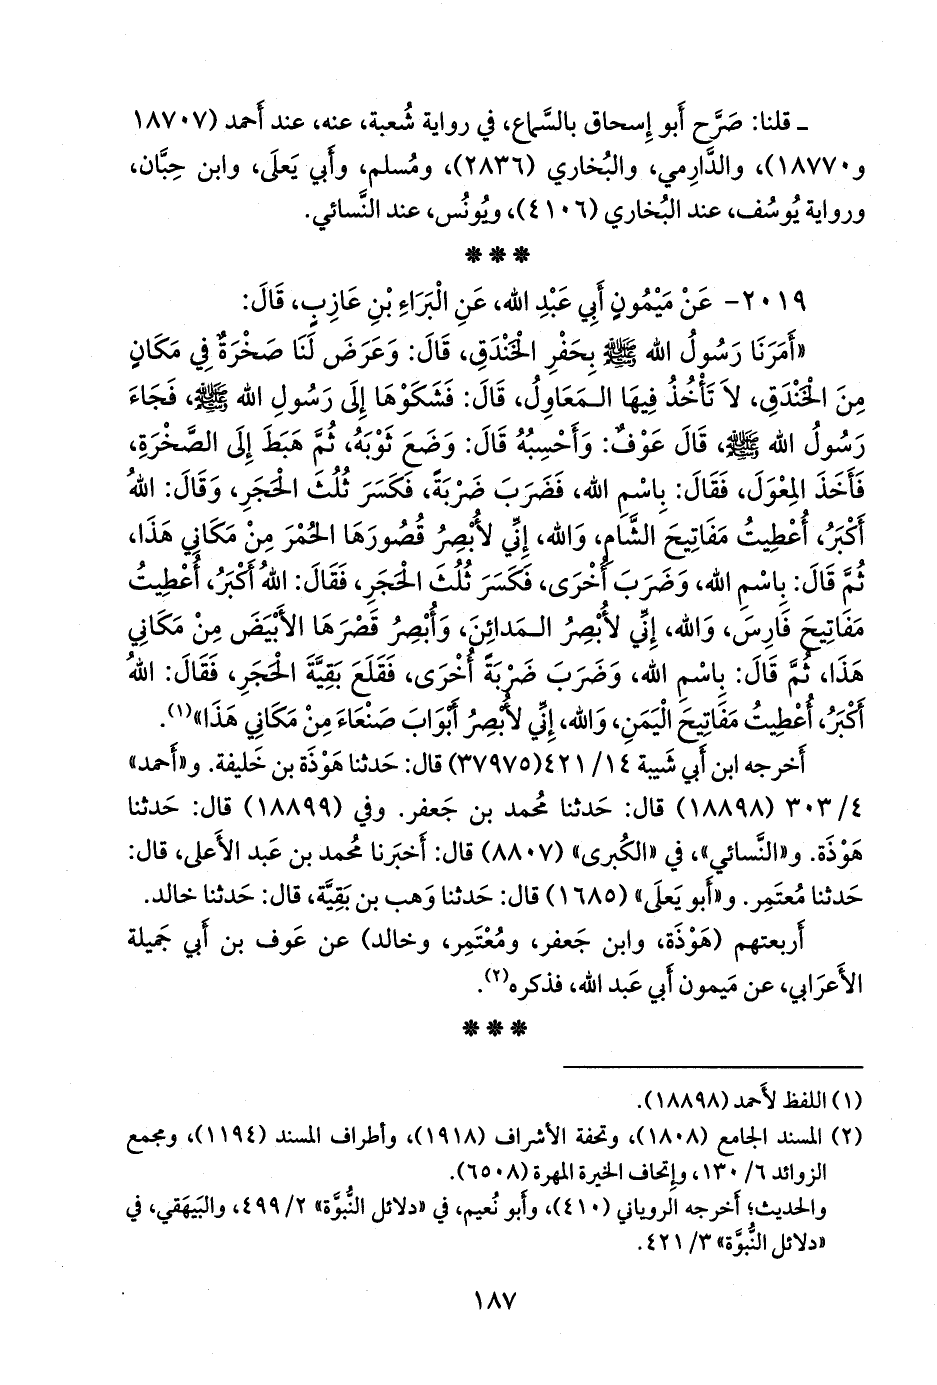 ـ قلنا: صَرَّح أَبو إِسحاق بالسَّماع، في رواية شُعبة، عنه، عند أَحمد (١٨٧٠٧
و١٨٧٧٠)، والدَّارِمي، والبُخاري (٢٨٣٦)، ومُسلم، وأَبي يَعلَى، وابن حِبَّان،
ورواية يُوسُف، عند البُخاري (٤١٠٦)، ويُونُس، عند النَّسائي.
***
٢٠١٩- عَنْ مَيْمُونٍ أَبِي عَبْدِ الله، عَنِ الْبَرَاءِ بْنِ عَازِبٍ، قَالَ:
«أَمَرَنَا رَسُولُ الله ﷺ بِحَفْرِ الْخَنْدَقِ، قَالَ: وَعَرَضَ لَنَا صَخْرَةٌ فِي مَكَانٍ
مِنَ الْخَنْدَقِ، لاَ تَأْخُذُ فِيهَا الْـمَعَاوِلُ، قَالَ: فَشَكَوْهَا إِلَى رَسُولِ الله ﷺ، فَجَاءَ
رَسُولُ الله ﷺ، قَالَ عَوْفٌ: وَأَحْسِبُهُ قَالَ: وَضَعَ ثَوْبَهُ، ثُمَّ هَبَطَ إِلَى الصَّخْرَةِ،
فَأَخَذَ المِعْوَلَ، فَقَالَ: بِاسْمِ الله، فَضَرَبَ ضَرْبَةً، فَكَسَرَ ثُلُثَ الْحَجَرِ، وَقَالَ: اللهُ
أَكْبَرُ، أُعْطِيتُ مَفَاتِيحَ الشَّامِ، وَالله، إِنِّي لأُبْصِرُ قُصُورَهَا الحُمْرَ مِنْ مَكَانِي هَذَا،
ثُمَّ قَالَ: بِاسْمِ الله، وَضَرَبَ أُخْرَى، فَكَسَرَ ثُلُثَ الْحَجَرِ، فَقَالَ: اللهُ أَكْبَرُ، أُعْطِيتُ
مَفَاتِيحَ فَارِسَ، وَالله، إِنِّي لأُبْصِرُ الْـمَدائِنَ، وَأُبْصِرُ قَصْرَهَا الأَبْيَضَ مِنْ مَكَانِي
هَذَا، ثُمَّ قَالَ: بِاسْمِ الله، وَضَرَبَ ضَرْبَةً أُخْرَى، فَقَلَعَ بَقِيَّةَ الْحَجَرِ، فَقَالَ: اللهُ
أَكْبَرُ، أُعْطِيتُ مَفَاتِيحَ الْيَمَنِ، وَالله، إِنِّي لأُبْصِرُ أَبْوَابَ صَنْعَاءَ مِنْ مَكَانِي هَذَا»(١).
أَخرجه ابن أَبي شَيبة ١٤/ ٤٢١(٣٧٩٧٥) قال: حَدثنا هَوْذَة بن خَليفة. و«أَحمد»
٤/ ٣٠٣ (١٨٨٩٨) قال: حَدثنا مُحمد بن جَعفر. وفي (١٨٨٩٩) قال: حَدثنا
هَوْذَة. و«النَّسائي»، في «الكُبرى» (٨٨٠٧) قال: أَخبَرنا مُحمد بن عَبد الأَعلى، قال:
حَدثنا مُعتَمِر. و«أَبو يَعلَى» (١٦٨٥) قال: حَدثنا وَهب بن بَقِيَّة، قال: حَدثنا خالد.
أَربعتهم (هَوْذَة، وابن جَعفر، ومُعْتَمِر، وخالد) عن عَوف بن أَبي جَميلة
الأَعرَابي، عن مَيمون أَبي عَبد الله، فذكره(٢).
***
(١) اللفظ لأَحمد (١٨٨٩٨).
(٢) المسند الجامع (١٨٠٨)، وتحفة الأشراف (١٩١٨)، وأطراف المسند (١١٩٤)، ومجمع
الزوائد ٦/ ١٣٠، وإتحاف الخيرة المهرة (٦٥٠٨).
والحديث؛ أخرجه الروياني (٤١٠)، وأَبو نُعيم، في «دلائل النُّبوَّة» ٢/ ٤٩٩، والبَيهَقي، في
«دلائل النُّبوَّة» ٣/ ٤٢١.
١٨٧